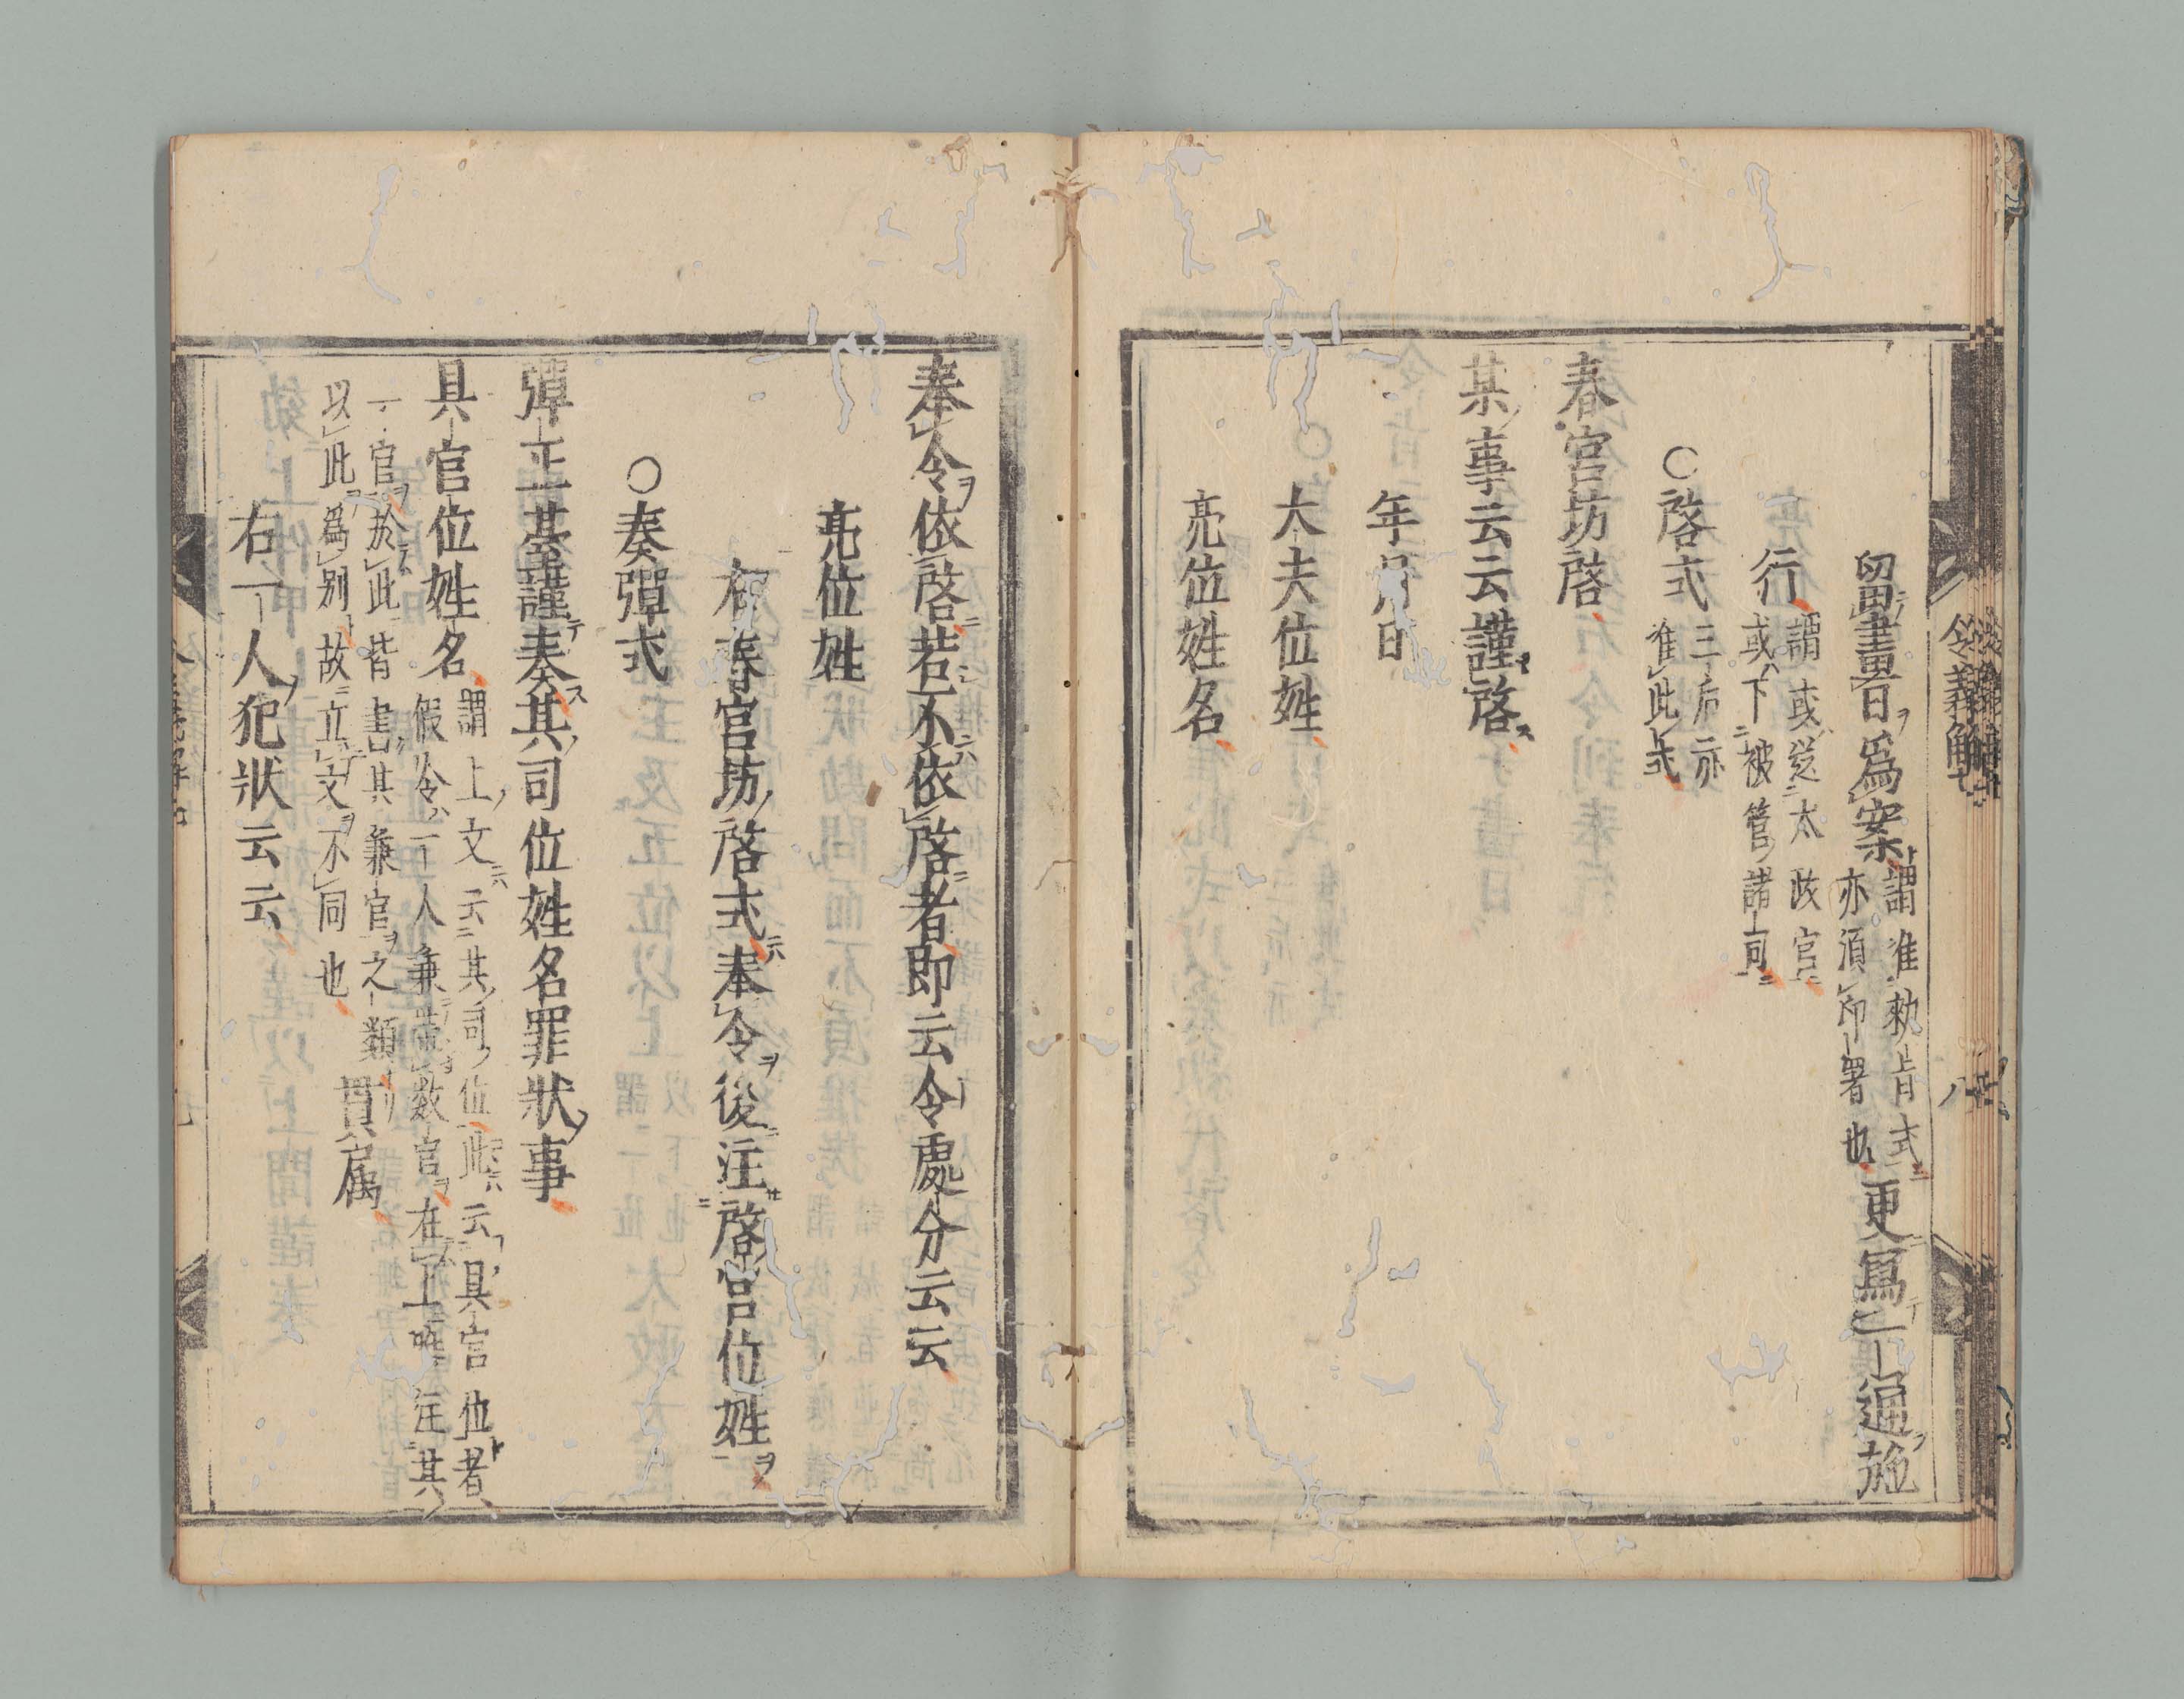 留畫日爲案謂准勅旨式亦湏印署也更寫一通施
行謂或送太政官或下被管諸司
○啓式三后亦准此式
春宮坊啓
某事云云謹啓
年月日
大夫位姓
亮位姓名
奉令依啓若不依啓者即云令處分云云
亮位姓
右春宮坊啓式奉令後注啓官位姓
○奏彈式
彈正臺謹奏其司位姓名罪狀事
具官位姓名謂上文云其司位此云具官位者假令一人兼帶数官在上唯注其
一官於此皆書其兼官之類以此爲別故立文不同也貫屬
右一人犯狀云云
令義解七
八